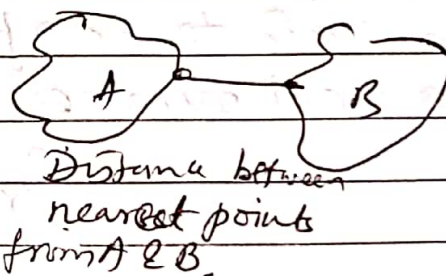 A
B
Distance between
nearest points
from A & B.